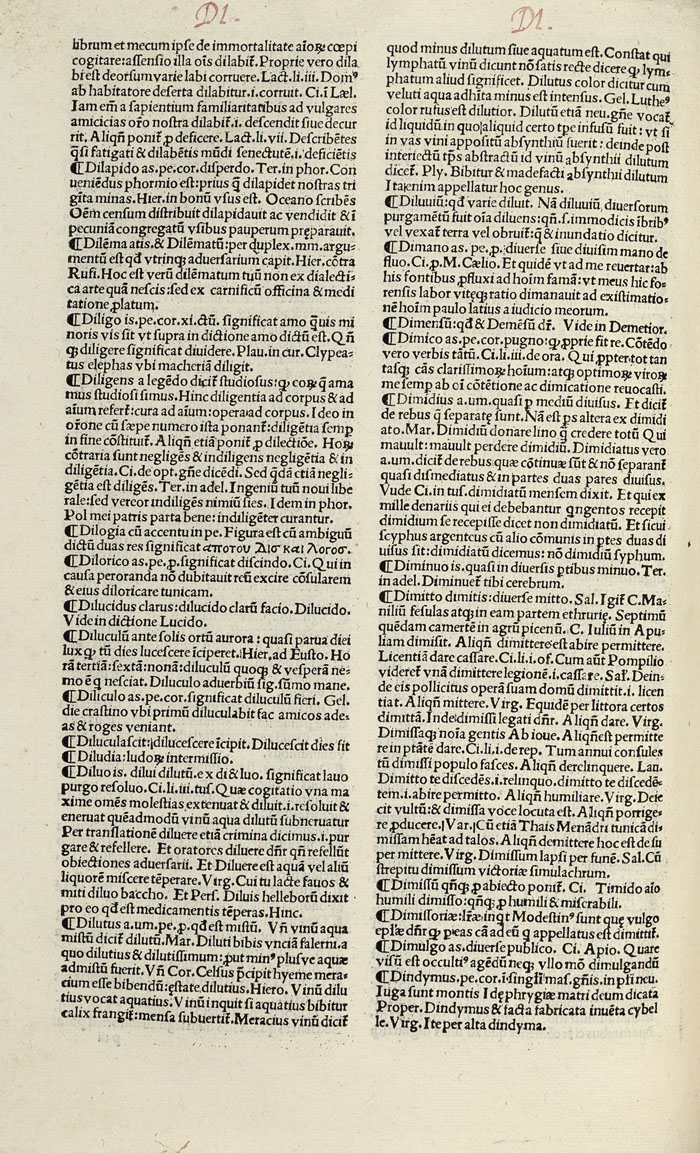 DI.
librum et mecum ipse de immortalitate aĩoꝝ cœpi
cogitare: assensio illa oīs dilabit̃. Proprie vero dila
bi est deorsum varie labi corruere. Lact. li. iii. Domꝰ
ab habitatore deserta dilabitur .i. corruit. Ci. ĩ Læl.
Iam em̃ a sapientium familiaritatibus ad vulgares
amicicias or̃o nostra dilabit̃ .i. descendit siue decur
rit. Aliqñ ponit̃ ꝓ deficere. Lact. li. vii. Describētes
q̃si fatigati & dilabētis mũdi senectutē .i. deficiētis
¶Dilapido as. pe. cor. disperdo. Ter. in phor. Con
ueniēdus phormio est: prius ꝗ̃ dilapidet nostras tri
gīta minas. Hier. in bonũ vsus est. Oceano scribēs
Oēm censum distribuit dilapidauit ac vendidit & ĩ
pecuniā congregatũ vsibus pauperum pręparauit.
¶Dilēma atis. & Dilēmatũ: per duplex .mm. argu-
mentũ est qđ vtrinꝗ aduersarium capit. Hier. cōtra
Rufi. Hoc est verũ dilēmatum tuũ non ex dialecti-
ca arte quā nescis: sed ex carnificũ officina & medi
tatione ꝓlatum.
¶Diligo is. pe. cor. xi. ctũ. significat amo quis mi
noris vis sit vt supra in dictione amo dictũ est. Qñ
ꝗ diligere significat diuidere. Plau. in cur. Clypea-
tus elephas vbi macheriā diligit.
¶Diligens a legēdo dicit̃ studiosus: ꝙ eoꝝ q̃ ama
mus studiosi simus. Hinc diligentia ad corpus & ad
aīum refert̃: cura ad aīum: opera ad corpus. Ideo in
or̃one cũ sæpe numero ista ponant̃: diligētia semp
in fine cōstituit̃. Aliqñ etiā ponit̃ ꝓ dilectiōe. Hoꝝ
cōtraria sunt negligēs & indiligens negligētia & in
diligētia. Ci. de opt. gñe dicēdi. Sed q̃dā ctiā negli-
gētia est diligēs. Ter. in adel. Ingeniũ tuũ noui libe
rale: sed vercor indiligēs nimiũ sies. Idem in phor.
Pol mei patris parta bene: indiligēter curantur.
¶Dilogia cũ accentu in pe. Figura est cũ ambiguũ
dictũ duas res significat αποτου Δισ και λογοσ.
¶Dilorico as. pe. ꝓ. significat discindo. Ci. Qui in
causa peroranda nō dubitauit reũ excire cōsularem
& eius diloricare tunicam.
¶Dilucidus clarus: dilucido clarũ facio. Dilucido.
Vide in dictione Lucido.
¶Diluculũ ante solis ortũ aurora: quasi parua diei
lux ꝙ tũ dies lucescere ĩciperet. Hier. ad Eusto. Ho
rā tertiā: sextā: nonā: diluculũ quoꝗ & vesperā ne-
mo ē q̃ nesciat. Diluculo aduerbiũ sig. sũmo mane.
¶Diliculo as. pe. cor. significat diluculũ fieri. Gel.
die crastino vbi primũ diluculabit fac amicos ade-
as & roges veniant.
¶Diluculascit: dilucescere ĩcipit. Dilucescit dies fit
¶Diludia: ludoꝝ intermissio.
¶Diluo is. dilui dilutũ. ex di & luo. significat lauo
purgo resoluo. Ci. li. iii. tus. Quæ cogitatio vna ma
xime omēs molestias extenuat & diluit .i. resoluit &
eneruat queadmodũ vinũ aqua dilutũ subneruatur
Per translationē diluere etiā crimina dicimus .i. pur
gare & refellere. Et oratores diluere dñr qñ refellũt
obiectiones aduersarii. Et Diluere est aquā vel aliũ
liquorē miscere tēperare. Virg. Cui tu lacte fauos &
miti diluo baccho. Et Pers. Diluis helleborũ dixit
pro eo qđ est medicamentis tēperas. Hinc.
¶Dilutus a. um. pe. ꝓ. qđ est mistũ. Vñ vinũ aqua
mistũ dicit̃ dilutũ. Mar. Diluti bibis vnciā falerni. a
quo dilutius & dilutissimum: ꝓut minꝰ plusve aquæ
admistũ fuerit. Vñ Cor. Celsus p̃cipit hyeme mera-
cium esse bibendũ: ęstate dilutius. Hiero. Vinũ dilu
tius vocat aquatius. Vinũ inquit si aquatius bibitur
calix frangit̃: mensa subuertit̃. Meracius vinũ dicit̃
DI.
quod minus dilutum siue aquatum est. Constat qui
lymphatũ vinũ dicunt nō satis recte dicere ꝙ lym-
phatum aliud significet. Dilutus color dicitur cum
veluti aqua adhita minus est intensus. Gel. Lutheꝰ
color rufus est dilutior. Dilutũ etiā neu. gñe vocat̃
id liquidũ in quo aliquid certo tpe infusũ fuit: vt si
in vas vini appositũ absynthiũ fuerit: deinde post
interiectũ tp̃s abstractũ id vinũ absynthii dilutum
dicet̃. Ply. Bibitur & madefacti absynthii dilutum
Ita enim appellatur hoc genus.
¶Diluuiũ: qđ varie diluit. Nā diluuiũ, diuersorum
purgamētũ fuit oīa diluens: qñ .s. immodicis ĩbribꝰ
vel vexat̃ terra vel obruit̃: q̃ & inundatio dicitur.
¶Dimano as. pe. ꝓ. diuerse siue diuisim mano de
fluo. Ci. ꝓ M. Cælio. Et quidē vt ad me reuertar: ab
his fontibus ꝓfluxi ad hoīm famā: vt meus hic fo-
rensis labor vitęꝗ ratio dimanauit ad existimatio-
nē hoīm paulo latius a iudicio meorum.
¶Dimensũ: qđ & Demēsũ dr̃. Vide in Demetior.
¶Dimico as. pe. cor. pugno: ꝙ ꝓprie fit re. Cōtēdo
vero verbis tātũ. Ci. li. iii. de ora. Qui ꝓpter tot tan
tasꝗ cās clarissimoꝝ hoīum: atꝗ optimoꝝ viroꝝ
me semp ab oī cōtētione ac dimicatione reuocasti.
¶Dimidius a. um. quasi ꝓ mediũ diuisus. Et dicit̃
de rebus q̃ separatę sunt. Nā est ps altera ex dimidi
ato. Mar. Dimidiũ donare lino ꝗ̃ credere totũ Qui
mauult: mauult perdere dimidiũ. Dimidiatus vero
a. um. dicit̃ de rebus quæ cōtinuæ sũt & nō separant̃
quasi dismediatus & in partes duas pares diuisus.
Vnde Ci. in tus. dimidiatũ mensem dixit. Et qui ex
mille denariis qui ei debebantur q̃ngentos recepit
dimidium se recepisse dicet non dimidiatũ. Et sicui
scyphus argenteus cũ alio cōmunis in ptes duas di
uisus sit: dimidiatũ dicemus: nō dimidiũ syphum.
¶Diminuo is. quasi in diuersis ptibus minuo. Ter.
in adel. Diminuet̃ tibi cerebrum.
¶Dimitto dimitis: diuerse mitto. Sal. Igit̃ C. Ma-
niliũ fesulas atꝗ in eam partem ethrurię. Septimũ
quēdam camertē in agrũ picenũ. C. Iuliũ in Apu-
liam dimisit. Aliqñ dimittere est abire permittere.
Licentiā dare cassare. Ci. li. i. of. Cum aũt Pompilio
videret̃ vnā dimittere legionē .i. cassare. Sal. Dein-
de eis pollicitus operā suam domũ dimittit .i. licen
tiat. Aliqñ mittere. Virg. Equidē per littora certos
dimittā. Inde dimissi legati dñr. Aliqñ dare. Virg.
Dimissaꝗ noīa gentis Ab ioue. Aliqñ est permitte
re in ptātē dare. Ci. li. i. de rep. Tum annui consules
tũ dimissi populo fasces. Aliqñ derclinquere. Lan.
Dimitto te discedēs .i. relinquo. dimitto te discedē-
tem .i. abire permitto. Aliqñ humiliare. Virg. Deie
cit vultũ: & dimissa voce locuta est. Aliqñ porrige-
re ꝓducere. Var. Cũ etiā Thais Menādri tunicā di-
missam hēat ad talos. Aliqñ demittere hoc est de su
per mittere. Virg. Dimissum lapsi per funē. Sal. Cũ
strepitu dimissum victoriæ simulachrum.
¶Dimissũ qñꝗ ꝓ abiecto ponit̃. Ci. Timido aīo
humili dimisso: qñꝗ ꝓ humili & miserabili.
¶Dimissoriæ: lr̃æ inꝗt Modestinꝰ sunt que vulgo
ep̃læ dñr ꝙ p eas cā ad eũ q̃ appellatus est dimittit̃.
¶Dimulgo as. diuerse publico. Ci. Apio. Quare
visũ est occultiꝰ agēdũ neꝗ vllo mō dimulgandũ
¶Dindymus. pe. cor. i. singĩi mas. gñis. in pĩi neu.
Iuga sunt montis Idę phrygiæ matri deum dicata
Proper. Dindymus & sacta fabricata inuēta cybel
le. Virg. Ite per alta dindyma.